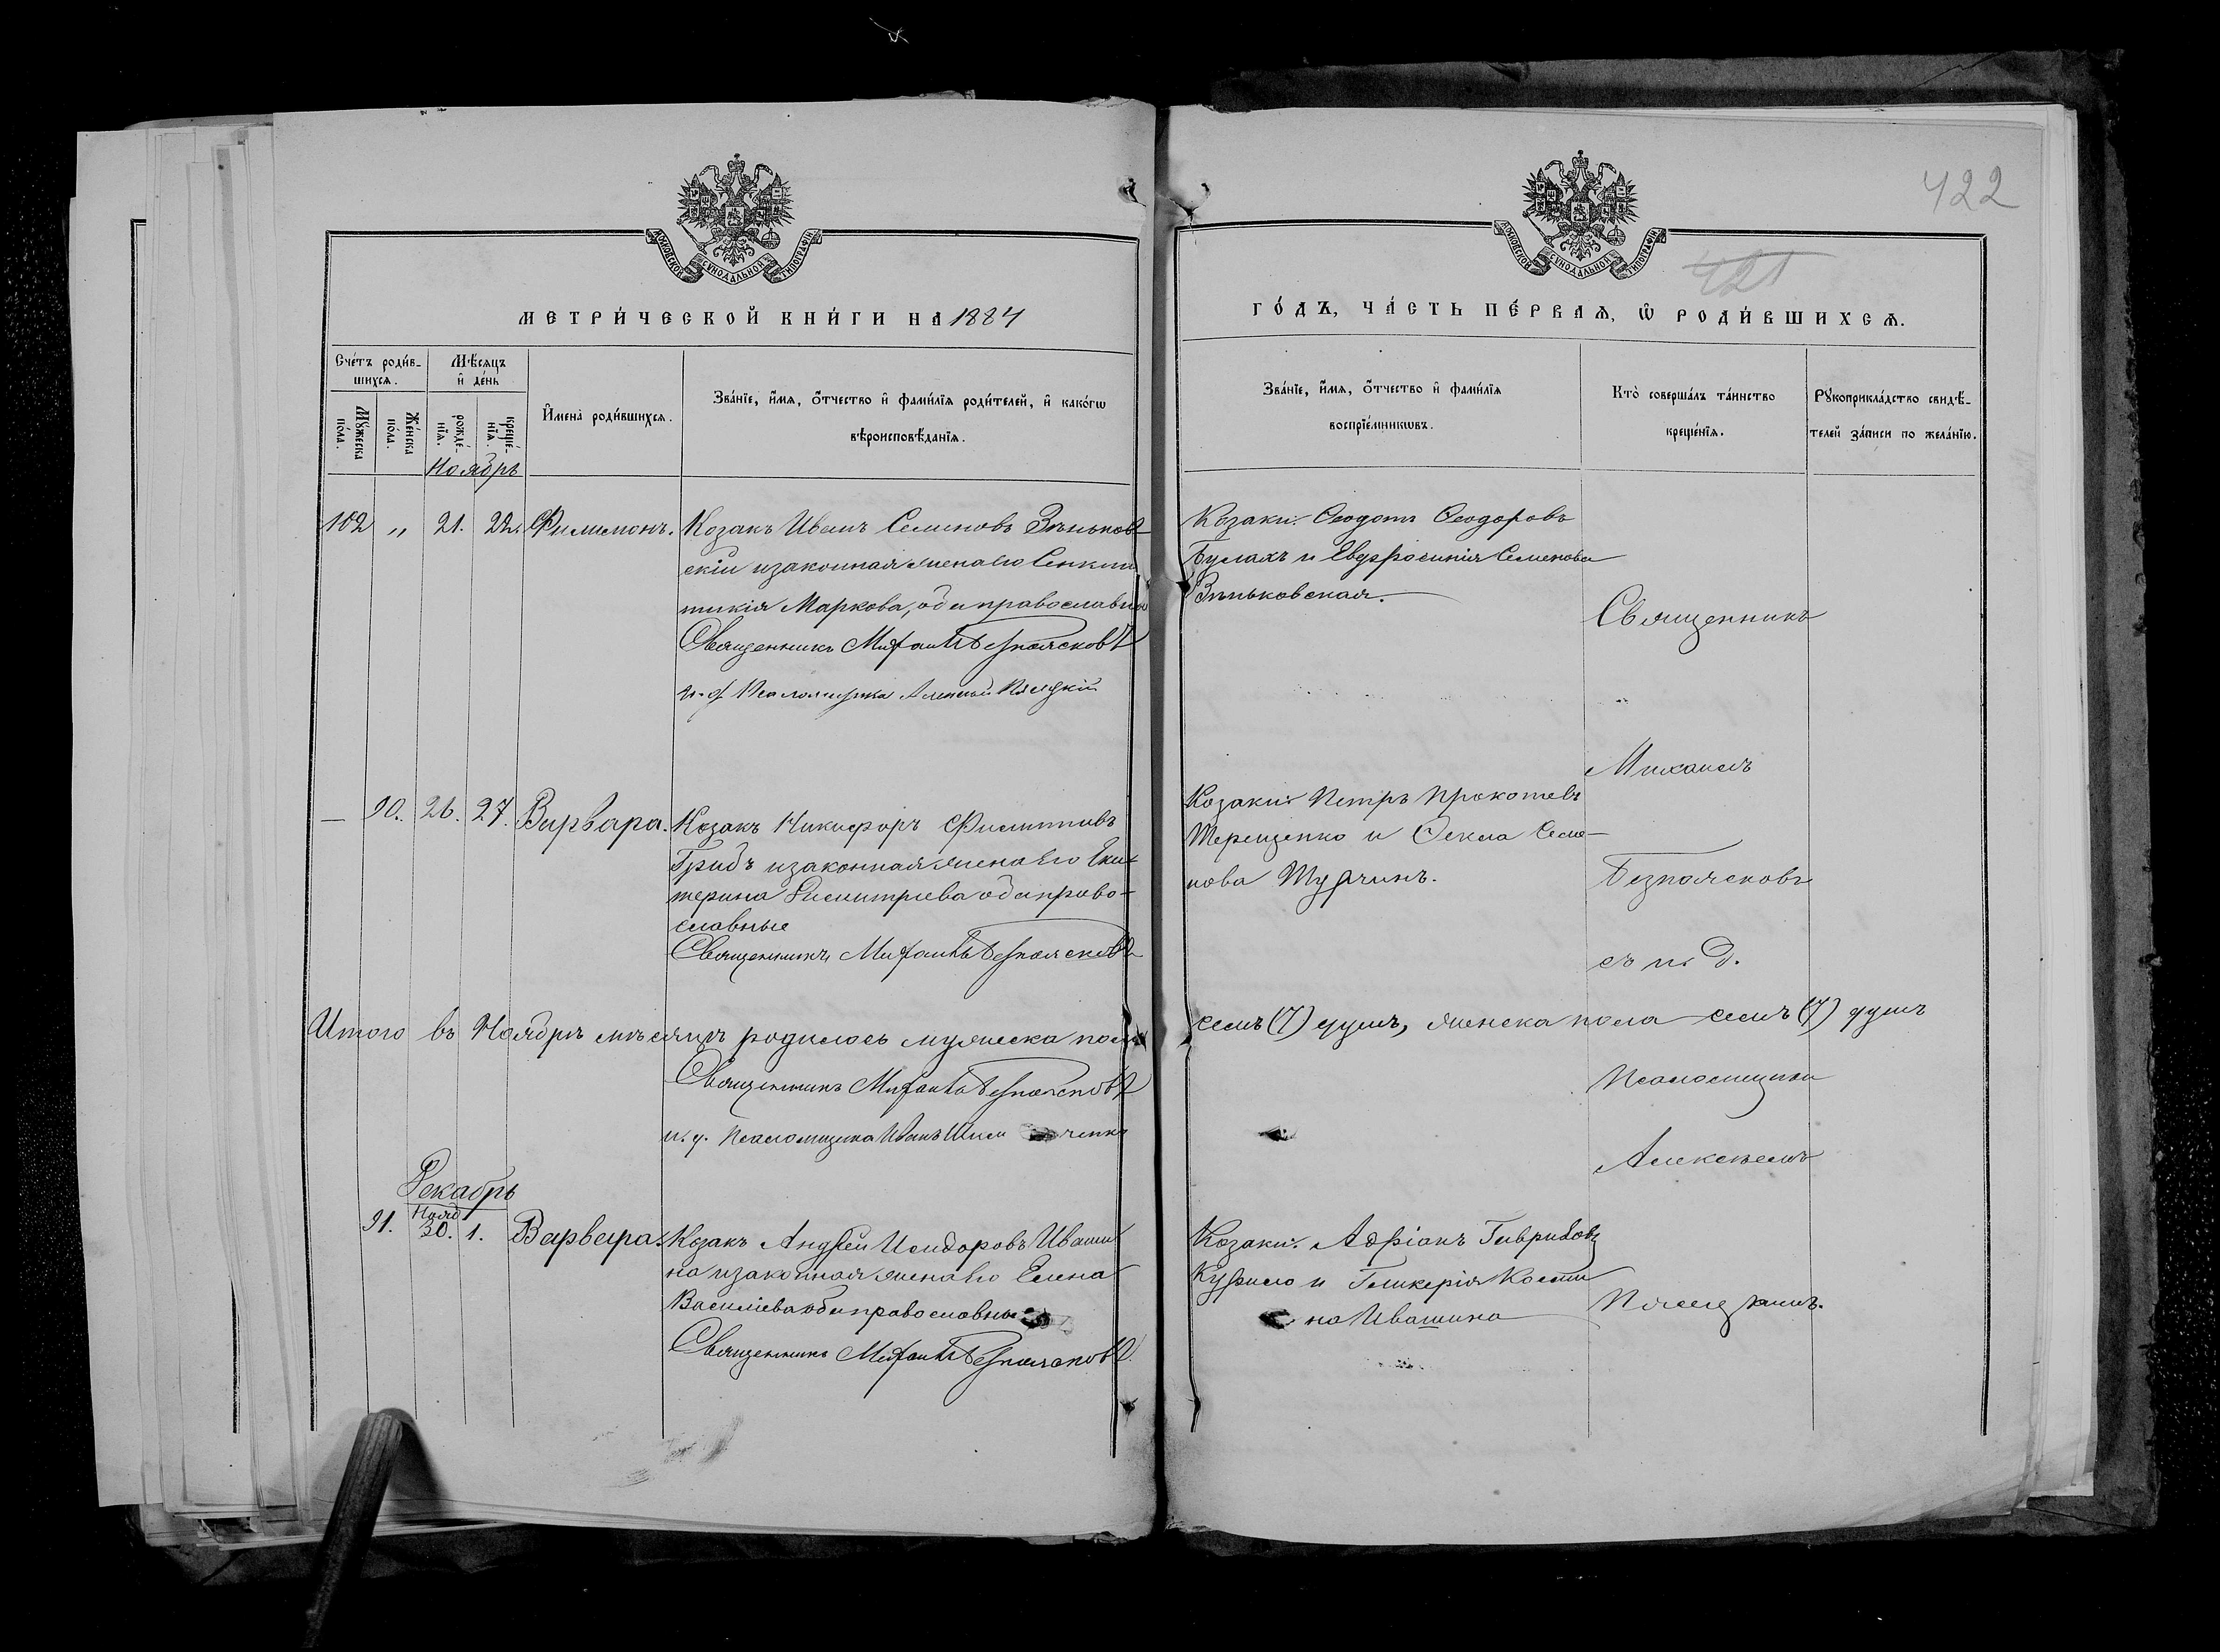 422
421
МОСКОВСКОЙ СУНОДАЛЬНОЙ ТИПОГРАФІИ
МОСКОВСКОЙ СУНОДАЛЬНОЙ ТИПОГРАФІИ
МЕТРИ́ЧЕСКОЙ КНИ́ГИ НА 1884
ГО́ДЪ, ЧА́СТЬ ПЕ́РВАѦ, Ѽ РОДИ́ВШИХСѦ.
Сче́тъ роди́в-
шихсѧ.
Мꙋ́жеска по́ла.
Же́нска по́ла.
Мѣ́сѧцъ
и҆ де́нь
рожде́-нїѧ.
креще́-нїѧ.
И҆мена̀ роди́вшихсѧ.
Зва́нїе, и҆́мѧ, ѻ҆́тчество и҆ фами́лїѧ роди́телей, и҆ како́гѡ
вѣроисповѣ́данїѧ.
Зва́нїе, и҆́мѧ, ѻ҆́тчество и҆ фами́лїѧ
воспрїе́мникѡвъ.
Кто̀ соверша́лъ та́инство
креще́нїѧ.
Рꙋкоприкла́дство свидѣ́-
телей за́писи по жела́нїю.
Ноябрь
102 " 21. 22. Филимонъ. Козакъ Иванъ Семеновъ Зѣньков
скій и законная жена его
тикія Маркова, оба православные
Священникъ Михаилъ Безпоясковъ
и. д. Псаломщика Алексѣй
Козаки: Ѳеодотъ Ѳеодоровъ
Булахъ и Евдфросинія Семенова
Зѣньковская.
Священникъ
Михаилъ
Безпоясковъ
съ и. д.
— 90. 26. 27. Варвара. Козакъ Никифоръ Филиповъ
Грибъ и законная жена его Ека-
терина Димитріева оба право-
славные
Священникъ Михаилъ Безпоясковъ
Козаки: Петръ Прокопіевъ
Терещенко и Ѳекла Семе-
нова
Итого въ Ноябрѣ мѣсяцѣ родилось мужеска пола семь (7) душъ, женска пола семь (7) душъ
Священникъ Михаилъ Безпоясковъ
и. д. Псаломщика Иванъ
Псаломщика
Алексѣемъ
Декабрь
Нояб
91. 30. 1. Варвара. Козакъ Андрей Исидоровъ Иваши
на и законная жена его Елена
Василіева оба православные
Священникъ Михаилъ Безпоясковъ
Козаки: Адріанъ Гавриловъ
и Гликерія
на Ивашина